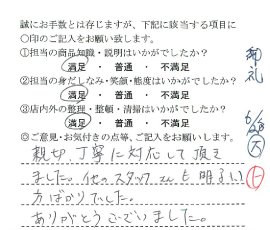 誠にお手数とは存じますが、下記に該当する項目に
○印のご記入をお願い致します。
①担当の商品知識・説明はいかがでしたか？
満足 ・ 普通 ・ 不満足
②担当の身だしなみ・笑顔・態度はいかがでしたか？
満足 ・ 普通 ・ 不満足
③店内外の整理・整頓・清掃はいかがでしたか？
満足 ・ 普通 ・ 不満足
◎ご意見・お気付きの点等、ご記入をお願いします。
親切、丁寧に対応して頂き
ました。他のスタッフさんも明るい
方ばかりでした。
ありがとうございました。
御礼